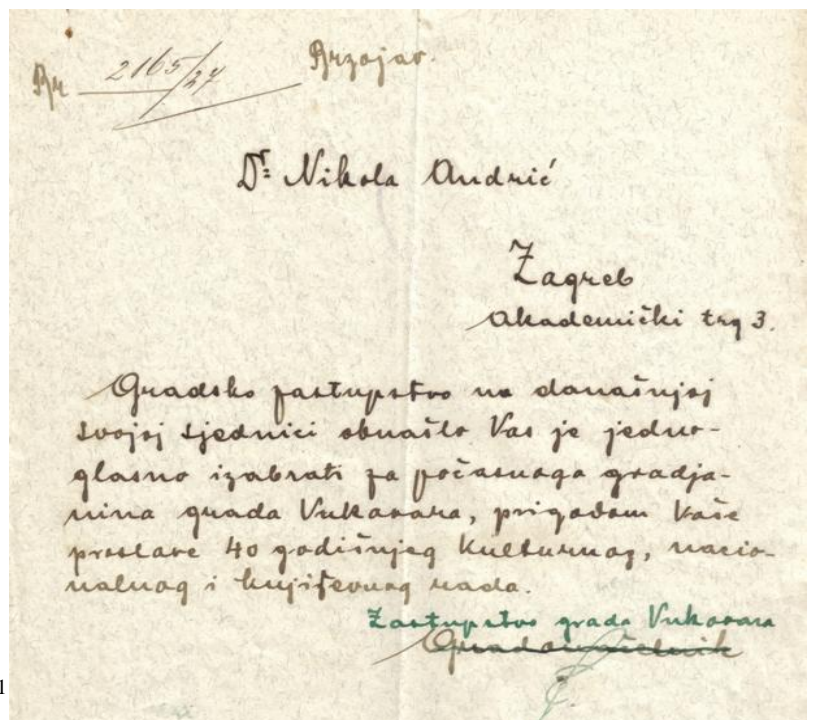 Br 2165/27 Brzojav.
Dr Nikola Andrić
Zagreb
Akademički trg 3.
Gradsko zastupstvo na današnjoj
svojoj sjednici obnašlo Vas je jedno-
glasno izabrati za počasnoga gradja-
nina grada Vukovara, prigodom Vaše
proslave 40 godišnjeg kulturnog, nacio-
nalnog i književnog rada.
Zastupstvo grada Vukovara
Gradonačelnik
1